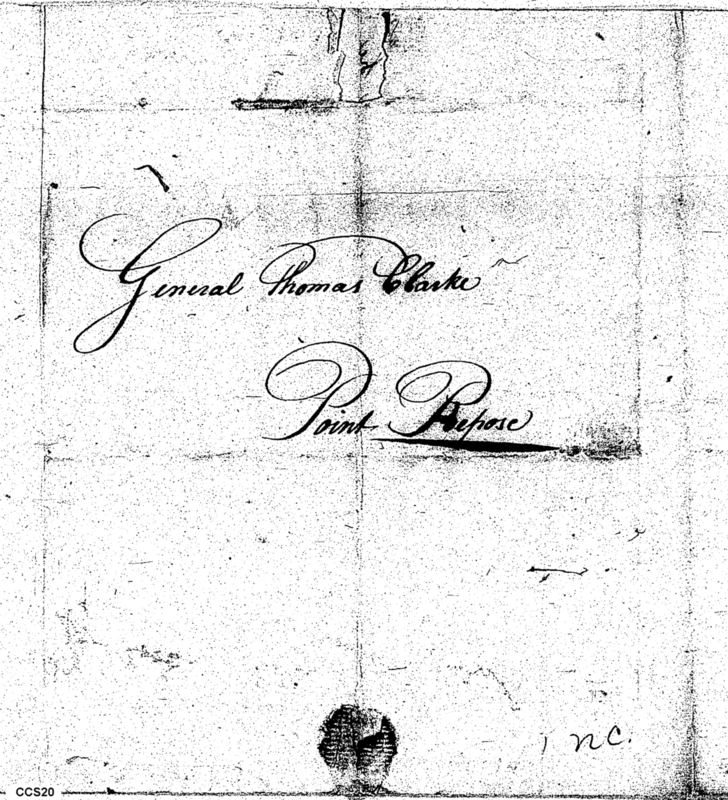 General Thomas Clarke
Point Repose
N.C.
CCS20